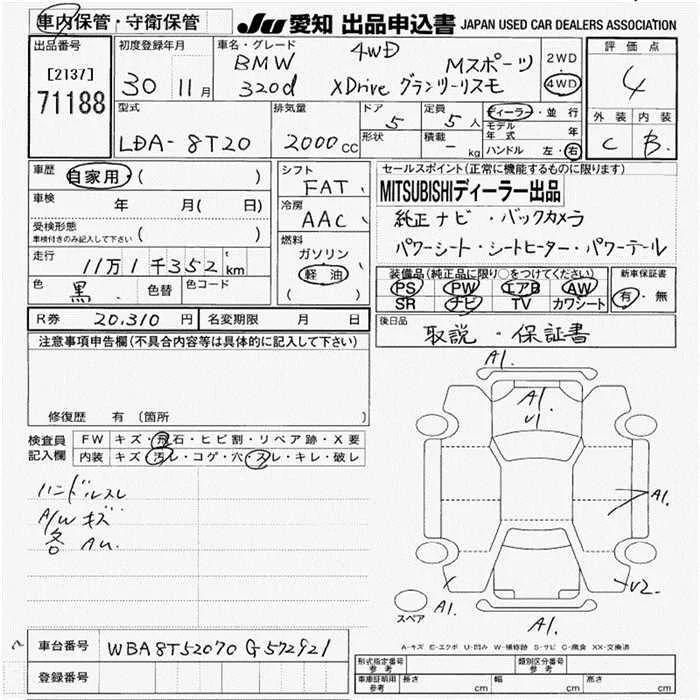 車内保管・守衛保管
JU 愛知 出品申込書 JAPAN USED CAR DEALERS ASSOCIATION
出品番号
[2137]
71188
初度登録年月
30 11月
車名・グレード
4WD
BMW Mスポーツ
320d XDrive グランツーリスモ
2WD
4WD
評価点
4
外装 内装
C B
型式
LDA-8T20
排気量
2000cc
ドア
5
形状
定員
5人
積載
- kg
ディーラー・並行
モデル年式 年
ハンドル 左・右
車歴 自家用・( )
車検 年 月( 日)
受検形態
車検付きのみ記入して下さい ( )
走行 11万1千352 km
色 黒 色替 色コード
シフト
FAT
冷房
AAC
燃料
ガソリン
軽油
( )
セールスポイント(正常に機能するものに限ります)
MITSUBISHIディーラー出品
純正ナビ・バックカメラ
パワーシート・シートヒーター・パワーテール
装備品(純正品に限り○をつけてください)
PS PW エアB AW
SR ナビ TV カワシート
新車保証書
有・無
R券 20,310円 名変期限 月 日
後日品
取説・保証書
注意事項申告欄(不具合内容等は具体的に記入して下さい)
修復歴 有(箇所 )
検査員記入欄
FW キズ・飛石・ヒビ割・リペア跡・X要
内装 キズ・汚レ・コゲ・穴・スレ・キレ・破レ
ハンドルスレ
A/W キズ
各 AU.
A1.
A1.
U1
A1.
U2
A1.
A1.
スペア
A-キズ E-エクボ U-凹み W-補修跡 S-サビ C-腐食 XX-交換済
車台番号 WBA8T52070G572921
登録番号
形式指定番号 参考
類別区分番号 参考
車庫証明用 参考
長さ cm
幅 cm
高さ cm